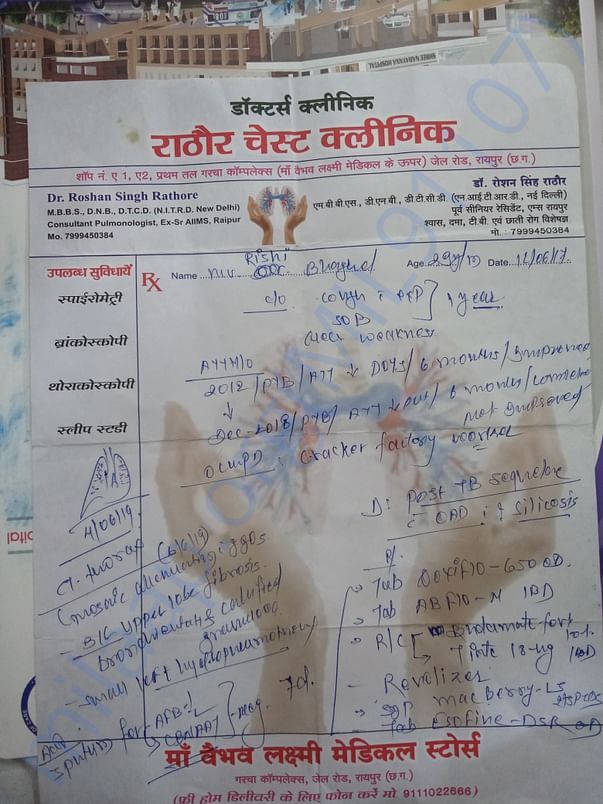 SHREE NARAYANA HOSPITAL
डॉक्टर्स क्लीनिक
राठौर चेस्ट क्लीनिक
शॉप नं. ए 1, ए2, प्रथम तल गरचा कॉम्पलेक्स (माँ वैभव लक्ष्मी मेडिकल के ऊपर) जेल रोड, रायपुर (छ.ग.)
Dr. Roshan Singh Rathore
M.B.B.S., D.N.B., D.T.C.D. (N.I.T.R.D. New Delhi)
Consultant Pulmonologist, Ex-Sr AIIMS, Raipur
Mo. 7999450384
डॉ. रोशन सिंह राठौर
एम.बी.बी.एस., डी.एन.बी., डी.टी.सी.डी. (एन.आई.टी.आर.डी., नई दिल्ली)
पूर्व सीनियर रेसिडेंट, एम्स रायपुर
श्वास, दमा, टी.बी. एवं छाती रोग विशेषज्ञ
मो. : 7999450384
उपलब्ध सुविधायें
स्पाईरोमेट्री
ब्रांकोस्कोपी
थोराकोस्कोपी
स्लीप स्टडी
Rx
Rishi
Name Mr. Baghel Age 29y/M Date
C/O cough c exp
SOB
1 year
weakness
ATTH/O
2012 / PTB / ATT ↓ DOTS / 6 months / Improved
↓
Dec-2018 / PTB / ATT ↓ / 6 months /
not improved
Occup : Cracker factory worker
D: Post TB sequelae
c OAD c silicosis
4/06/19
Ct. thorax (6/6/19)
- mosaic attenuating ggos
- B/L upper lobe fibrosis
bronchiectatic & calcified
granuloma
- small left hydropneumothorax
Sputum for AFB
CBNAAT
neg.
7d.
Tab Doxiflo-650 OD
Tab ABFLO-N 1BD
R/C
Tiate 18-ug
- Revolizer
Syp Macberry-LS
Tab Esofine-DSR OD
माँ वैभव लक्ष्मी मेडिकल स्टोर्स
गरचा कॉम्पलेक्स, जेल रोड, रायपुर (छ.ग.)
(फ्री होम डिलीवरी के लिए फोन करें मो. 9111022666)